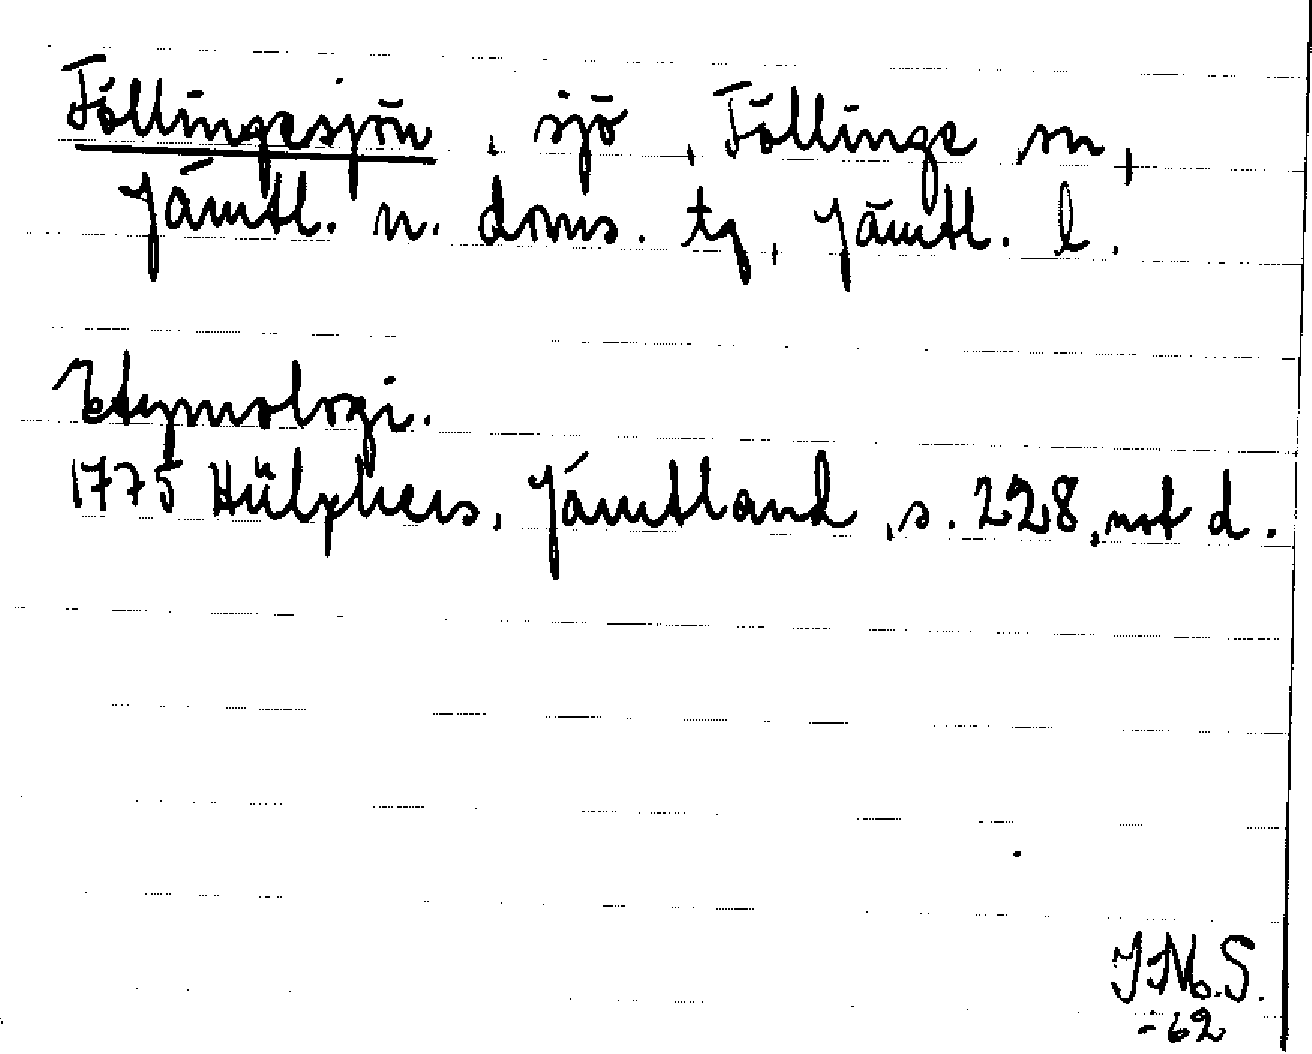 Föllingesjön, sjö, Föllinge sn,
Jämtl. n. doms. tg, Jämtl. l.
Etymologi.
1775 Hülphers, Jämtland, s. 228, not d.
J.M.S.
-62